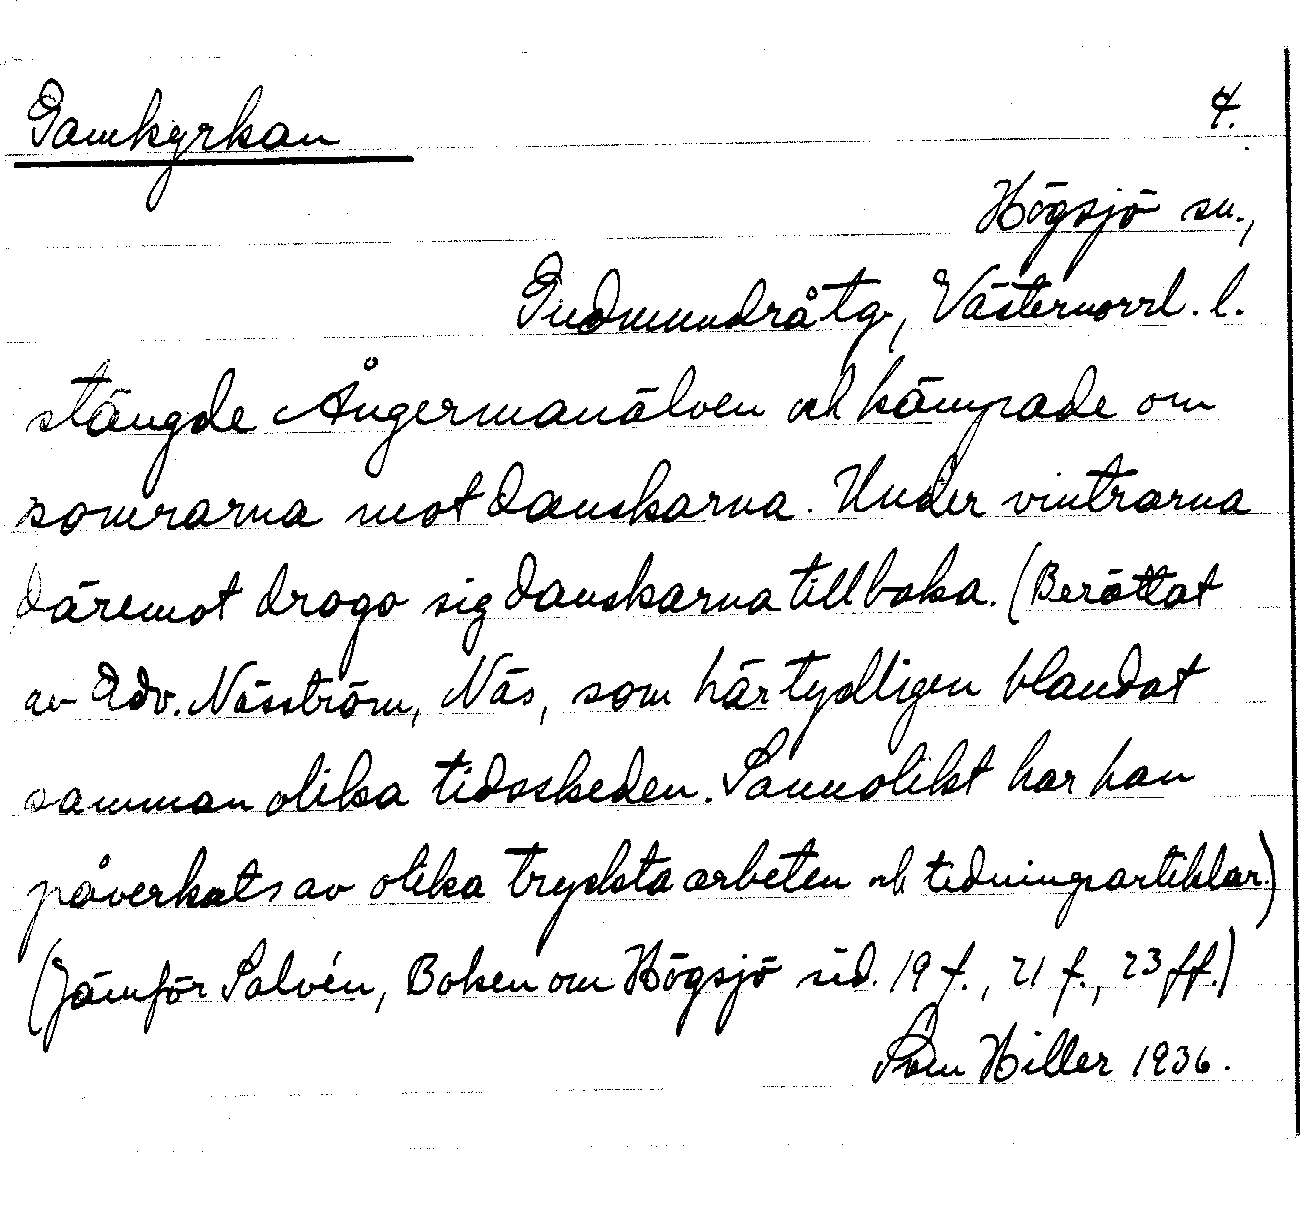 Gamkyrkan 4.
Högsjö sn.,
Gudmundrå tg, Västernorrl. l.
stängde Ångermanälven och kämpade om
somrarna mot danskarna. Under vintrarna
däremot drogo sig danskarna tillbaka. (Berättat
av Edv. Näsström, Näs, som här tydligen blandat
samman olika tidsskeden. Sannolikt har han
påverkats av olika tryckta arbeten och tidningsartiklar.)
(Jämför Salvén, Boken om Högsjö sid. 19 f., 21 f., 23 ff.)
Hiller 1936.